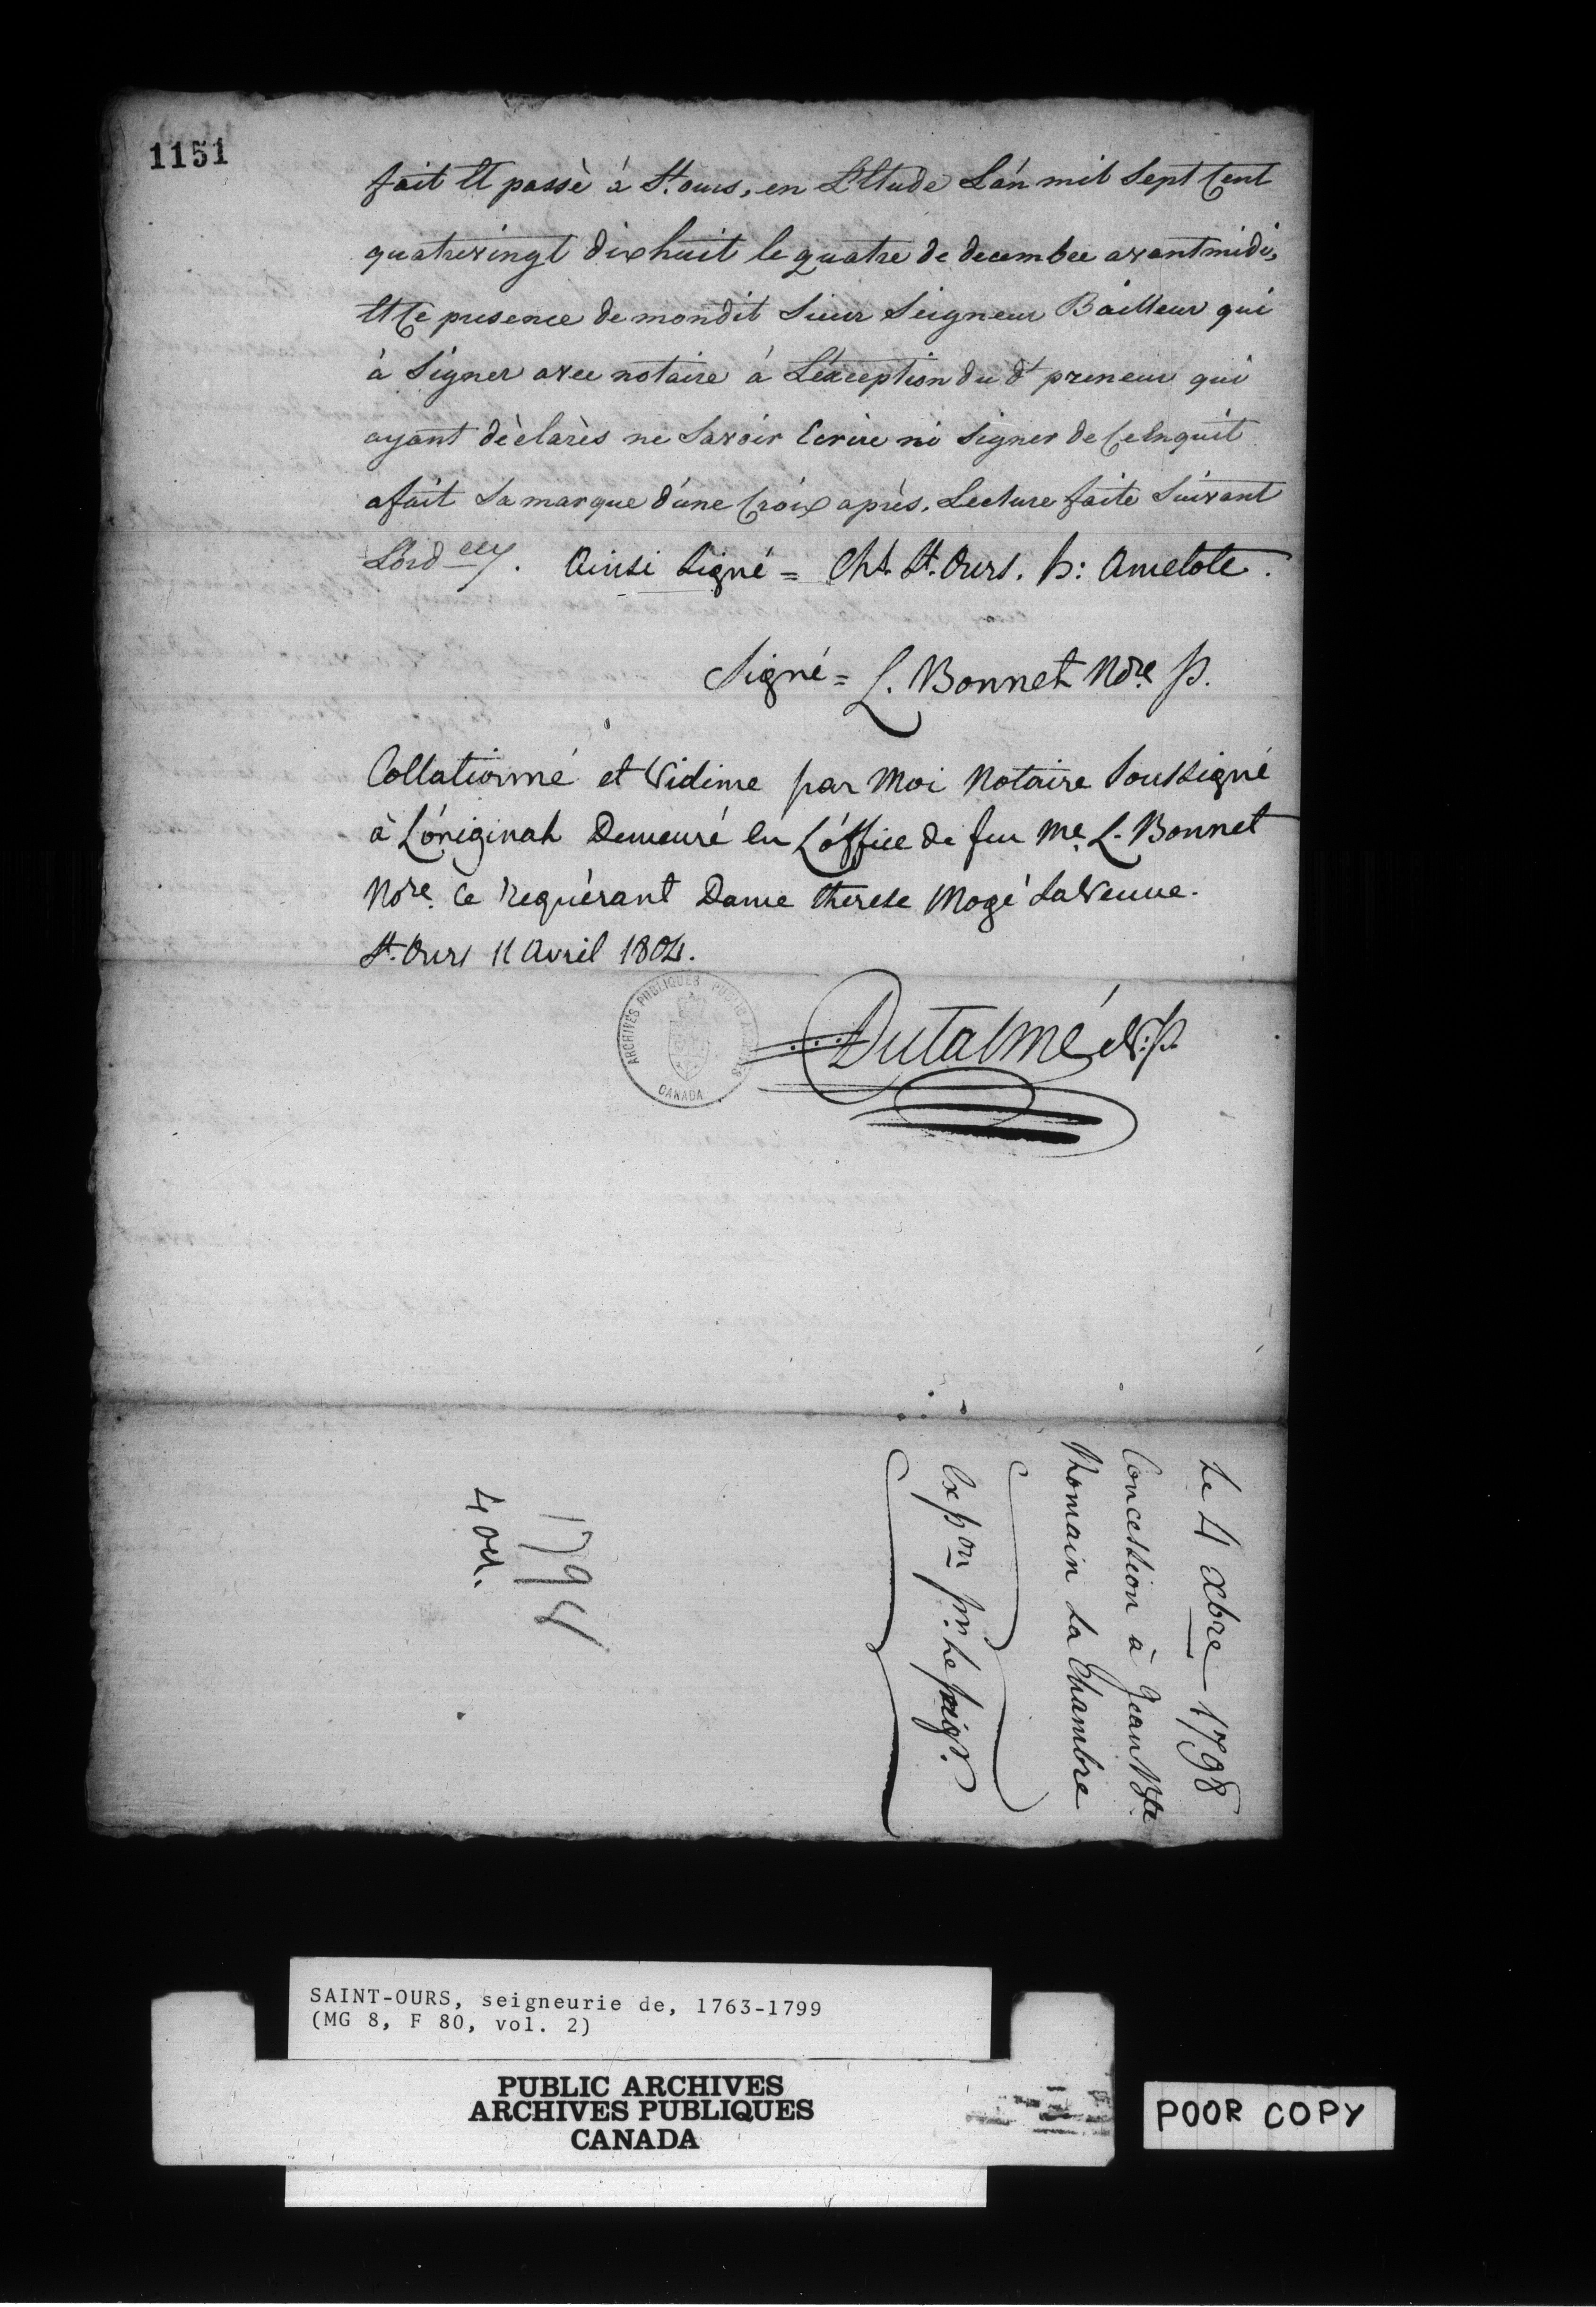 1151
fait Et passè à St. ours, en L'Etude L'án mil Sept Cent
quatrevingt dixhuit le quatre de decembre avantmidi,
Et Ce presence de mondit Sieur Seigneur Bailleur qui
à Signer avec notaire à L'éxception du dt preneur qui
ayant dèclarès ne Savoir Ecrire ni Signer de Ce Enquit
afait Sa marque d'une Croix après. Lecture faite Suivant
L'ord. Ainsi Signé = Chs. St. Ours. h: Amelote.
Signé = L. Bonnet Nore p.
Collationné et Vidime par Moi Notaire Soussigné
à L'óriginal Demeuré En L'óffice de feu Me. L. Bonnet
Nore. Ce requérant Dame therese Mogé Sa Veuve.
St. Ours 11 Avril 1804.
ARCHIVES PUBLIQUES PUBLIC ARCHIVES
CANADA
Dutalmé N:p.
Le 4 xbre 1798
Concession à Jean Bte
Romain La Chambre
Expon pr. Le seigr.
179
4
SAINT-OURS, seigneurie de, 1763-1799
(MG 8, F 80, vol. 2)
PUBLIC ARCHIVES
ARCHIVES PUBLIQUES
CANADA
POOR COPY